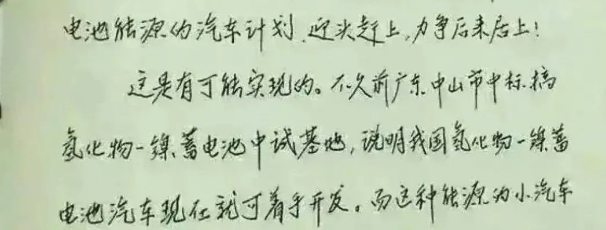 电池能源的汽车计划,迎头赶上,力争后来居上!
这是有可能实现的。不久前广东中山市中标搞
氢化物一镍蓄电池中试基地,说明我国氢化物一镍蓄
电池汽车现在就可着手开发。而这种能源的小汽车